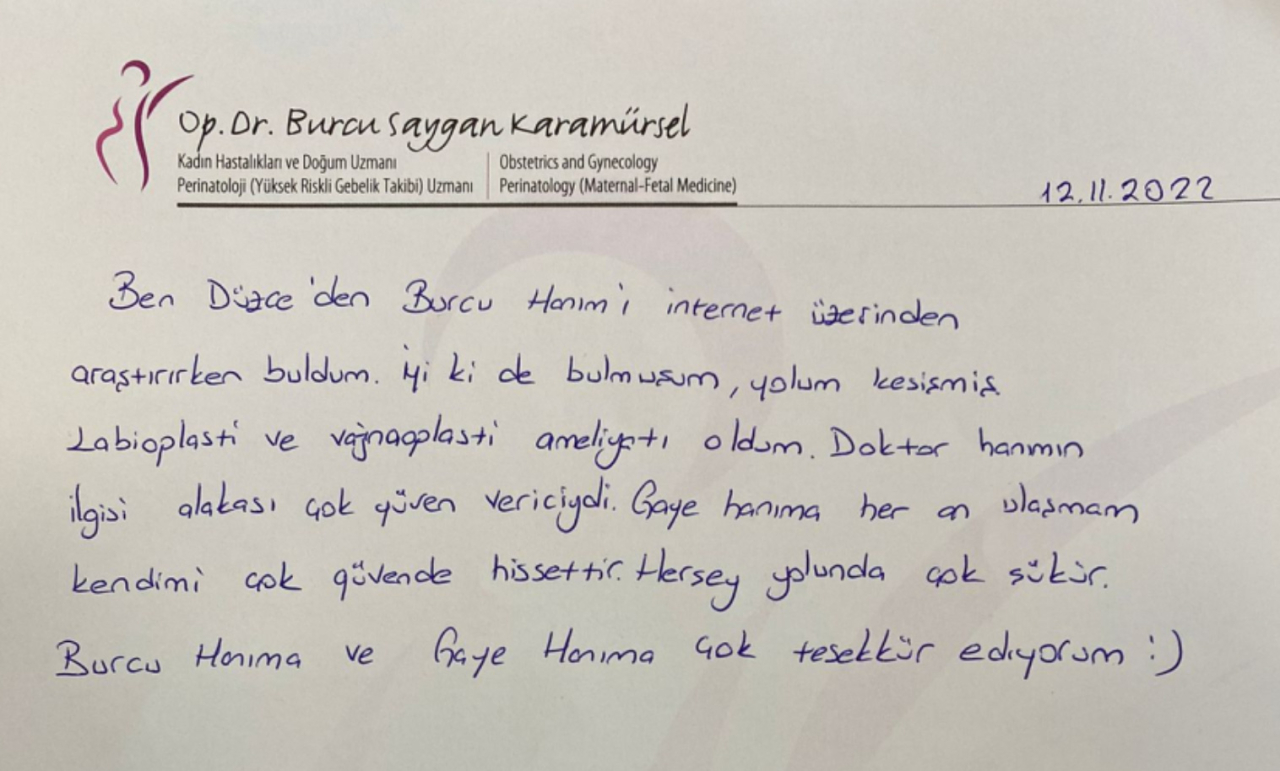 Op. Dr. Burcu Saygan Karamürsel
Kadın Hastalıkları ve Doğum Uzmanı
Perinatoloji (Yüksek Riskli Gebelik Takibi) Uzmanı
Obstetrics and Gynecology
Perinatology (Maternal-Fetal Medicine)
12.11.2022
Ben Düzce'den Burcu Hanım'ı internet üzerinden
araştırırken buldum. İyi ki de bulmuşum, yolum kesişmiş
Labioplasti ve vajnaoplasti ameliyatı oldum. Doktor hanmın
ilgisi alakası çok güven vericiydi. Gaye hanıma her an ulaşmam
kendimi çok güvende hissettir. Herşey yolunda çok şükür.
Burcu Hanıma ve Gaye Hanıma çok teşekkür ediyorum :)